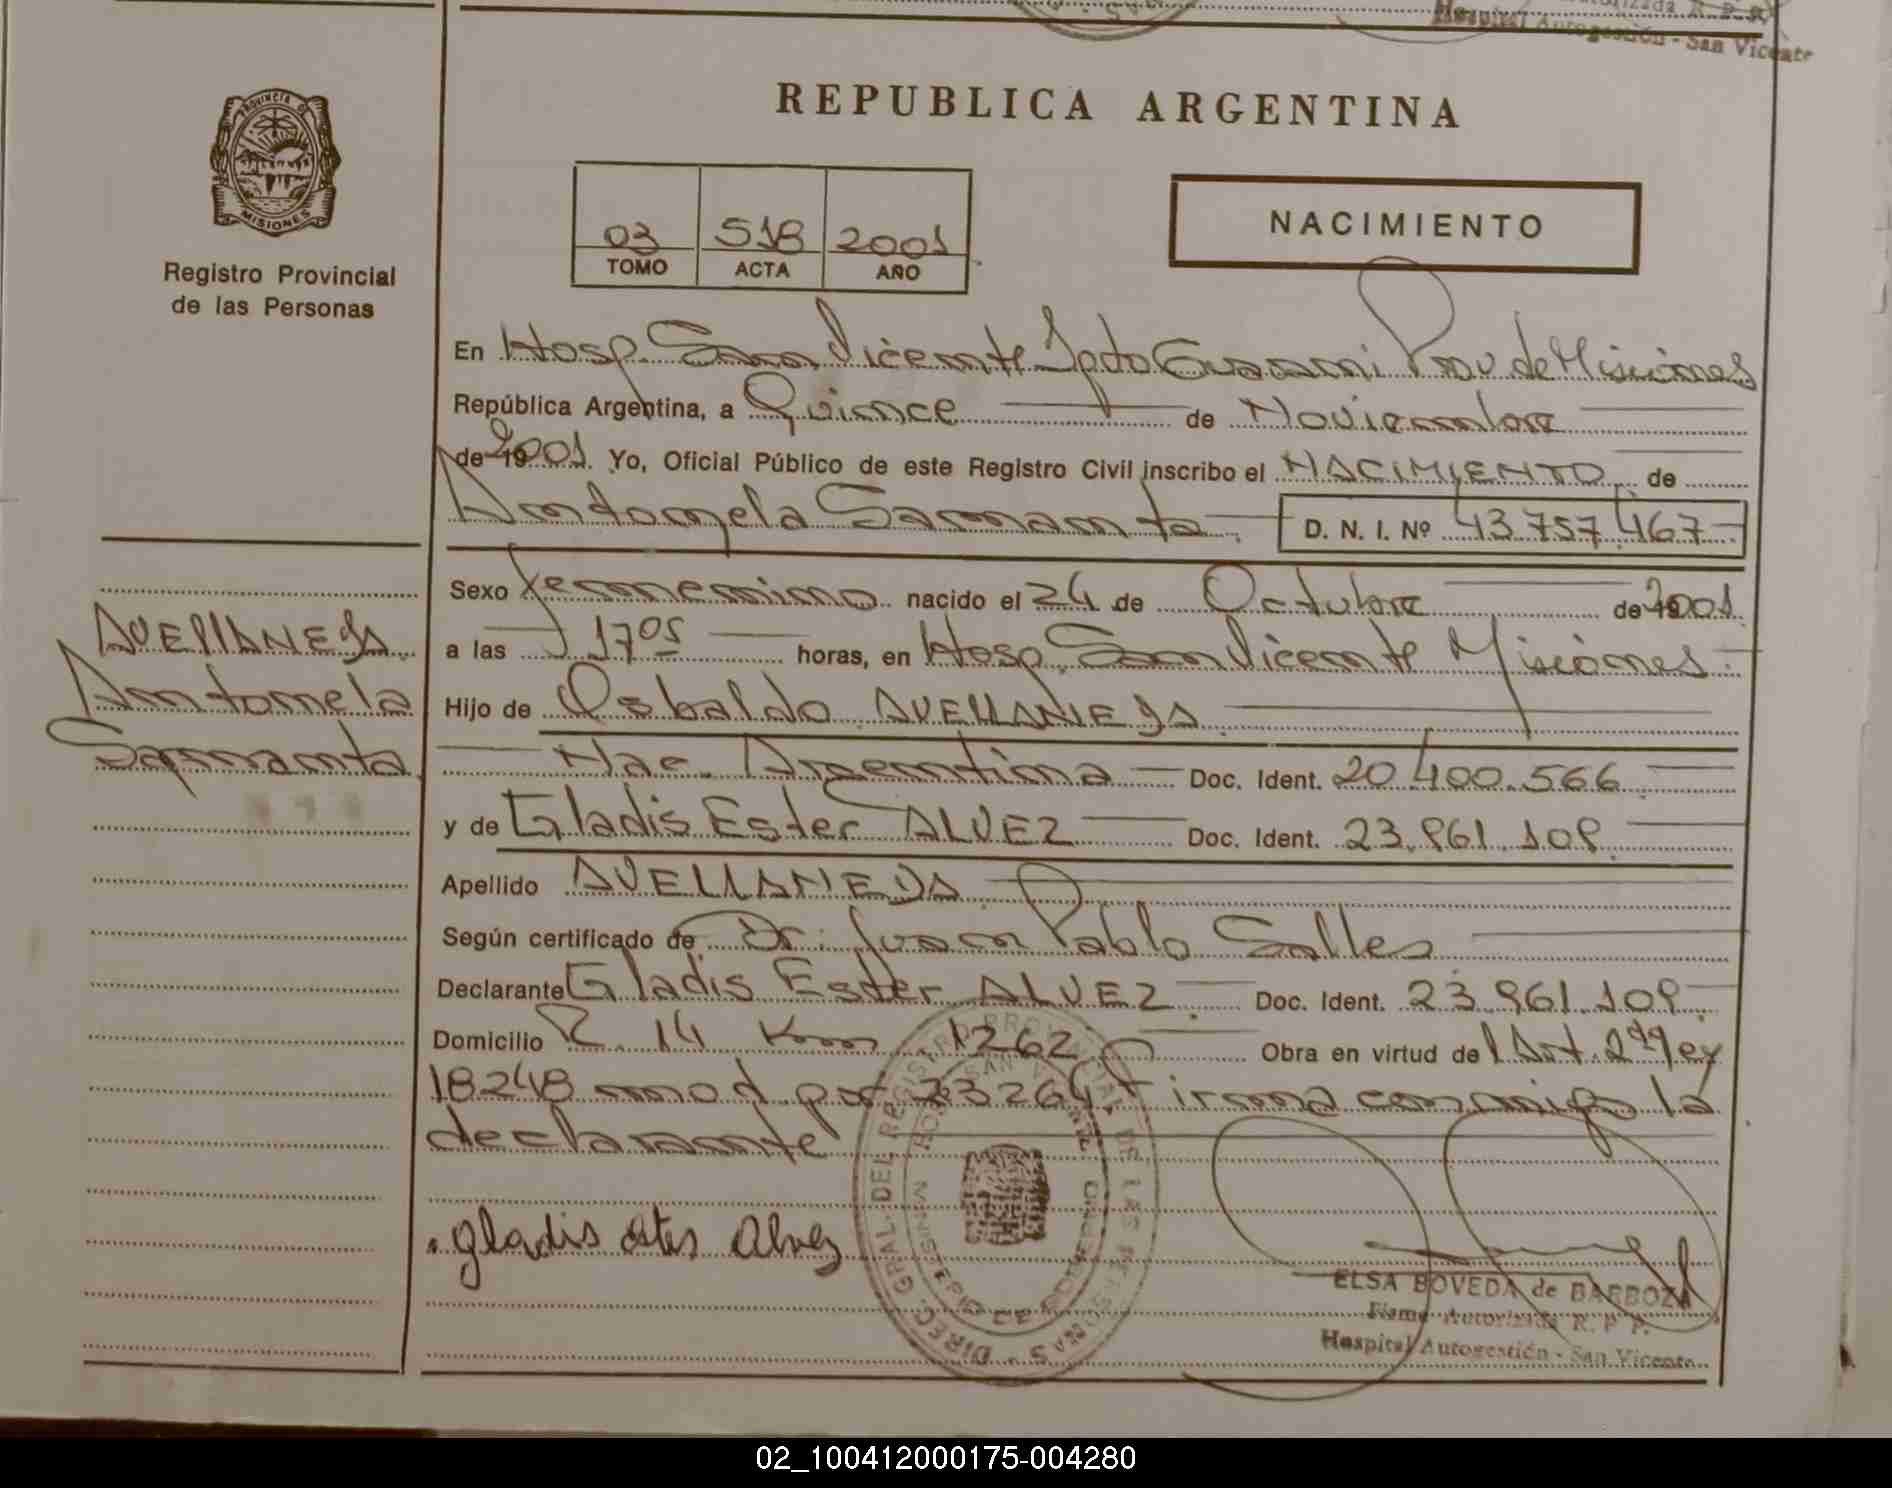 Hospital Autogestión - San Vicente
REPUBLICA ARGENTINA
PROVINCIA DE
MISIONES
Registro Provincial
de las Personas
03 518 2001
TOMO ACTA AÑO
NACIMIENTO
En Hosp. San Vicente Dpto Guarani Prov de Misiones
República Argentina, a Quince de Noviembre
de 192001. Yo, Oficial Público de este Registro Civil inscribo el NACIMIENTO de
Antonela Samanta D. N. I. Nº 43.757.467
AVELLANEDA
Antonela
Samanta
Sexo femenino nacido el 24 de Octubre de 192001
a las 17 05 horas, en Hosp. San Vicente Misiones
Hijo de Osbaldo AVELLANEDA
Nac. Argentina Doc. Ident. 20.400.566
y de Gladis Ester ALVEZ Doc. Ident. 23.861.108
Apellido AVELLANEDA
Según certificado de Dr. Juan Pablo Salles
Declarante Gladis Ester ALVEZ Doc. Ident. 23.861.108
Domicilio R. 14 Km 1262 Obra en virtud del Art. 2º Ley
18248 mod por 23264. Firma conmigo la
declarante
gladis ester Alvez
DIREC. GRAL. DEL REGISTRO PROVINCIAL DE LAS PERSONAS
ELSA BOVEDA de BARBOZA
Firma Autorizada R. P. P.
Hospital Autogestión - San Vicente
02_100412000175-004280